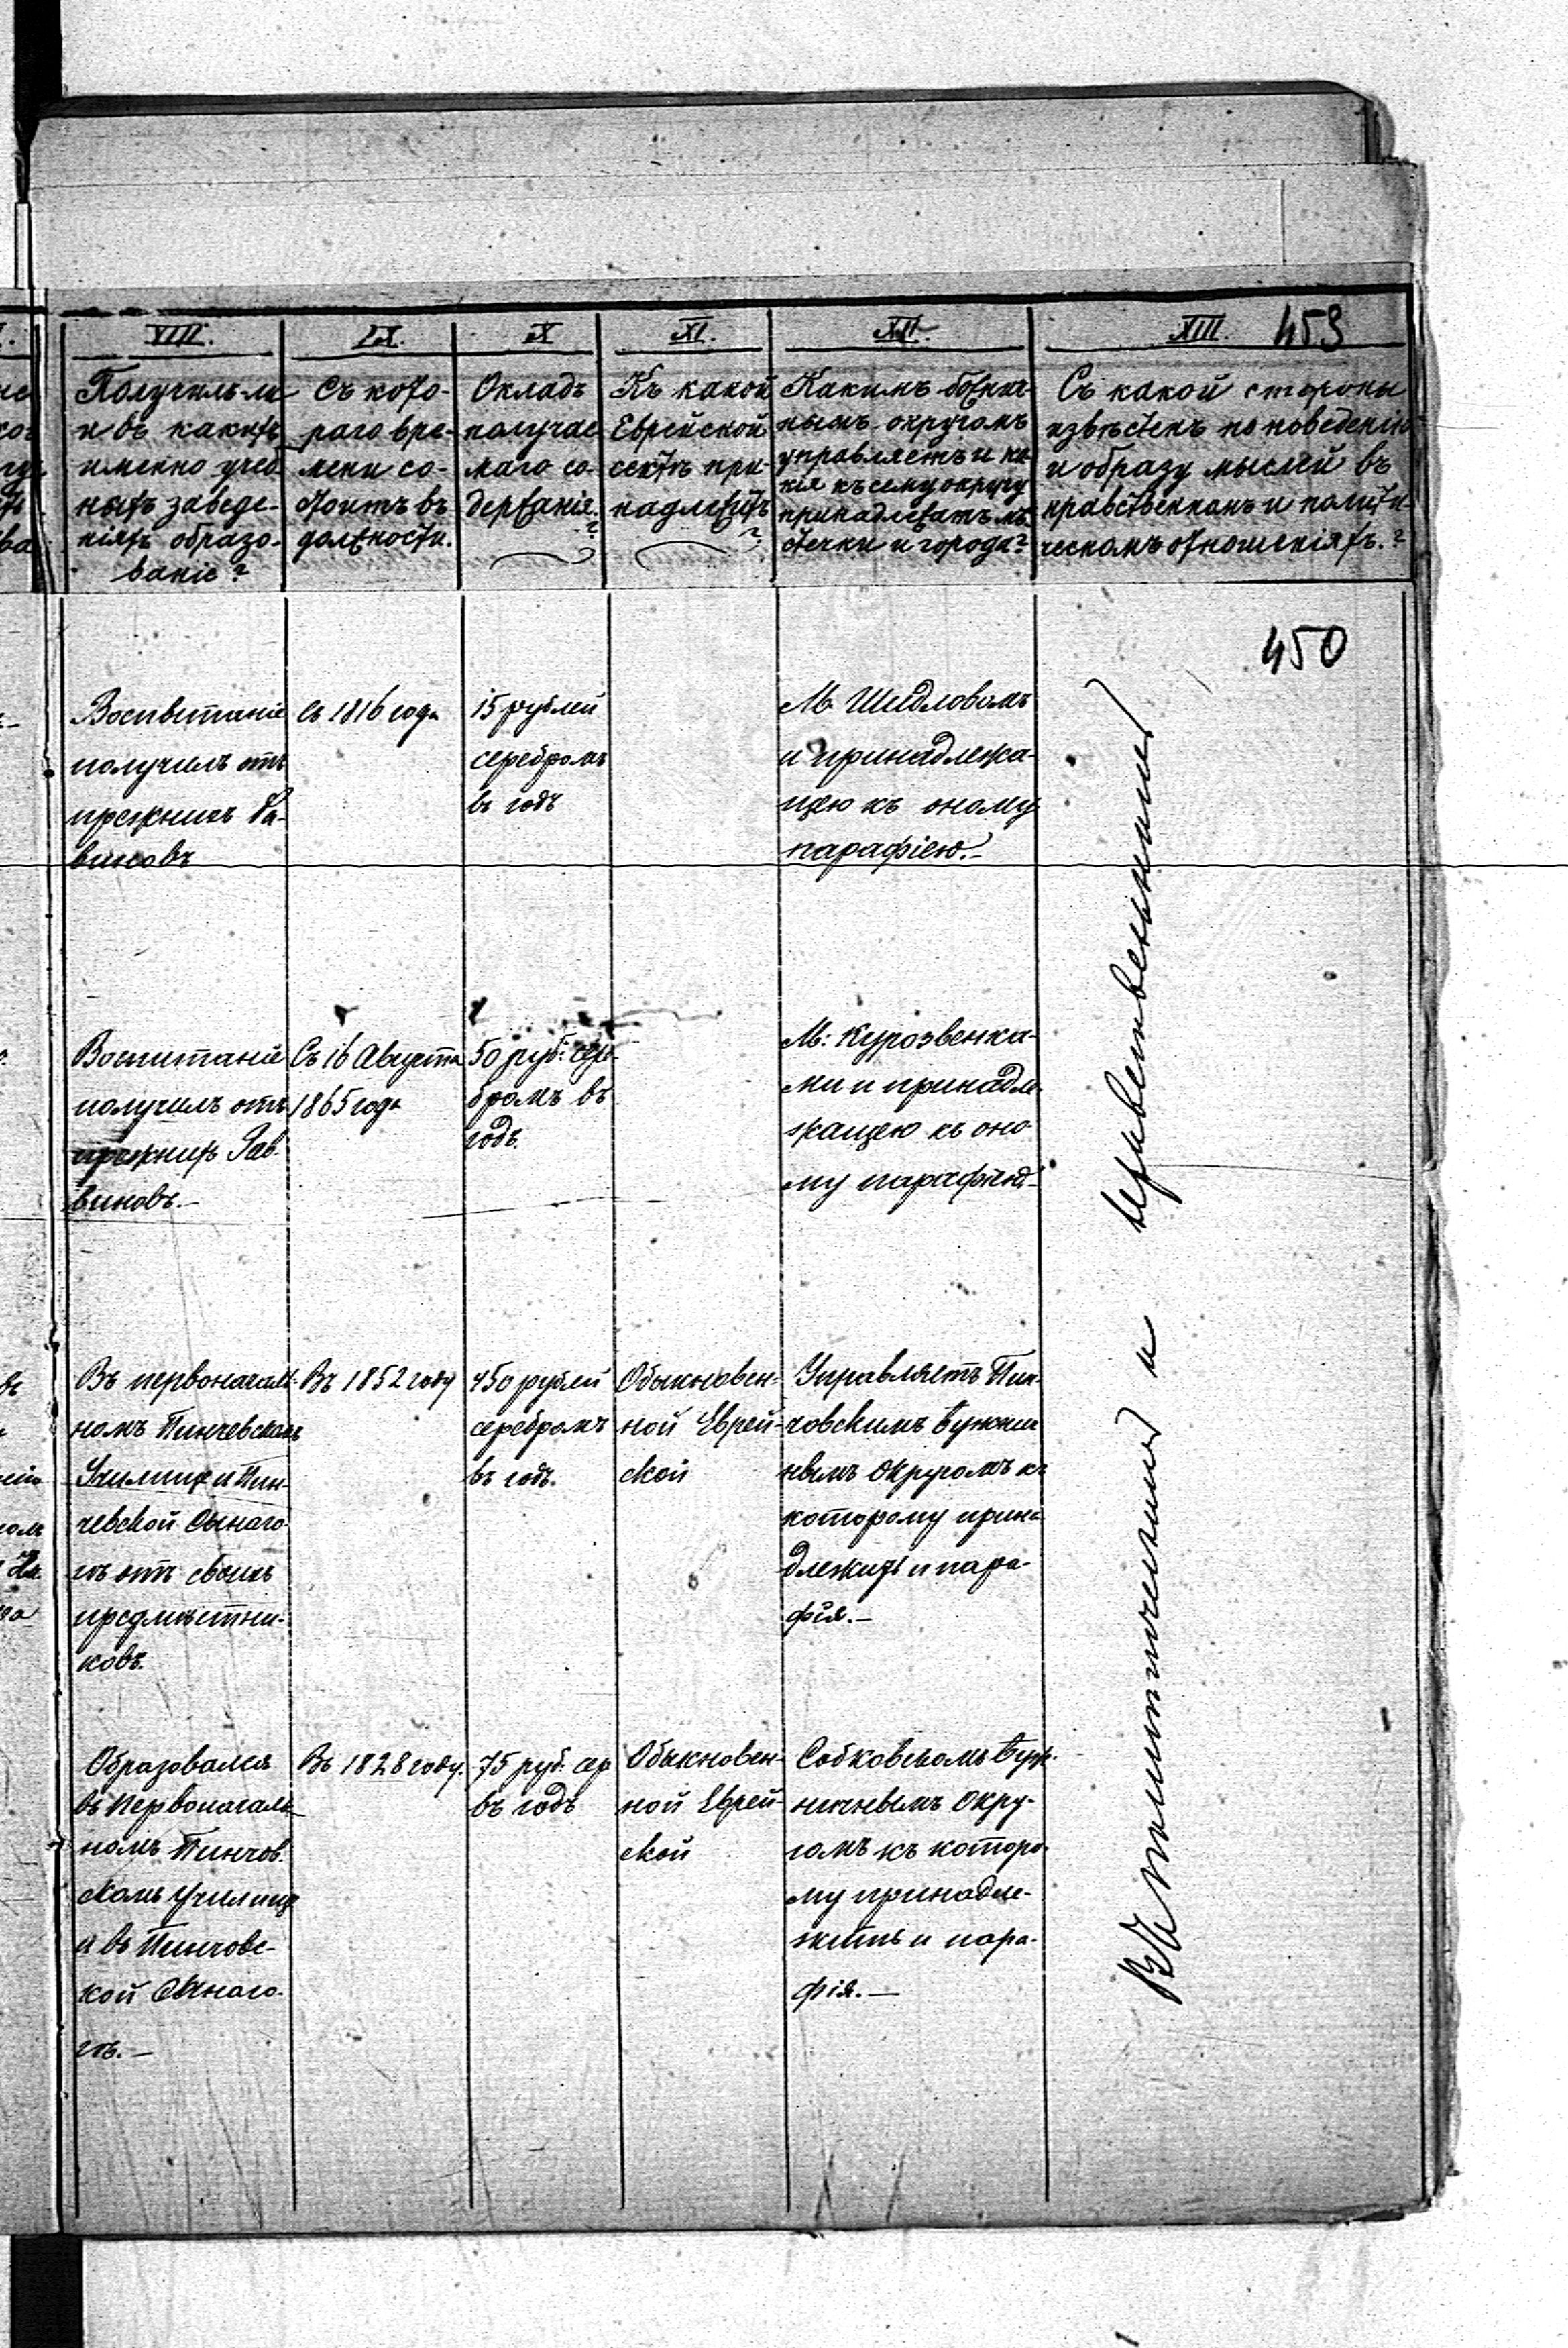 VIII.
Получилъ-ли
и въ какихъ
именно учеб
ныхъ заведе-
ніяхъ образо-
ваніе?
IX.
Съ кото-
раго вре-
мени со-
стоитъ въ
должности.
X
Окладъ
получае
маго со-
держанія.
?
XI.
Къ какой
Еврейской
сектѣ при-
надлежитъ
?
XII.
Какимъ божнич-
нымъ округомъ
управляетъ и ка-
кія къ сему округу
принадлежатъ мѣ-
стечки и города?
XIII.
453
Съ какой стороны
извѣстенъ по поведенію
и образу мыслей въ
нравственномъ и полити-
ческомъ отношеніяхъ.?
450
Воспитаніе
получилъ отъ
прежнихъ Ра-
виновъ
Съ 1816 года
15 рублей
серебромъ
въ годъ
М. Шидловомъ
и принадлежа-
щею къ оному
парафіею.-
Воспитаніе
получилъ отъ
прежнихъ Рав
виновъ.-
Съ 16 Августа
1865 года
50 руб: сере-
бромъ въ
годъ.
М: Курозвенка-
ми и принадле
жащею къ оно
му парафіею.-
Въ первоначаль-
номъ Пинчевскомъ
Училище и Пин-
чевской Сынаго-
гѣ отъ своихъ
предмѣстни-
ковъ.
Въ 1852 году
450 рублей
серебромъ
въ годъ.
Обыкновен-
ной Еврей-
ской
Управляетъ Пин-
човскимъ Бужнич
нымъ Округомъ къ
которому прина
длежитъ и пара-
фія.-
Образовался
въ Первоначаль-
номъ Пинчов.
скомъ Училище
и въ Пинчовс-
кой Сынаго-
гѣ.-
Въ 1828 году.
75 руб. сер
въ годъ
Обыкновен-
ной Еврей-
ской
Собковскомъ Буж-
ничнымъ Окру-
гомъ къ которо-
му принадле-
житъ и пара-
фія.-
Въ политическомъ и нравственномъ